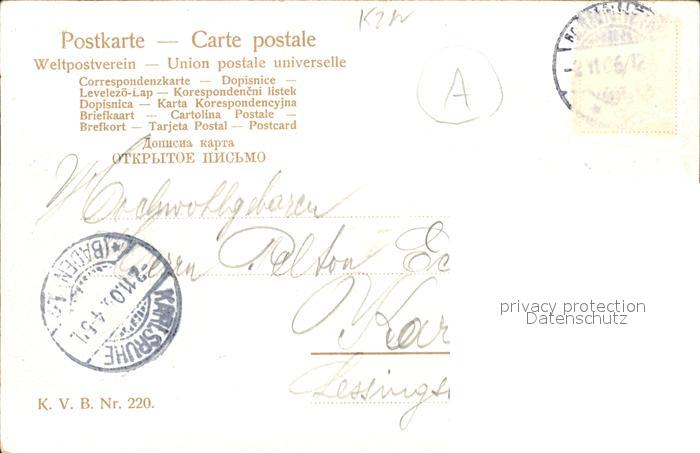 K2W
Postkarte — Carte postale
Weltpostverein — Union postale universelle
Correspondenzkarte — Dopisnice —
Levelező-Lap — Korespondenční listek
Dopisnica — Karta Korespondencyjna
Briefkaart — Cartolina Postale —
Brefkort — Tarjeta Postal — Postcard
Дописна карта
ОТКРЫТОЕ ПИСЬМО
A
2 11 06
Hochwohlgeboren
Herrn Ec
Kar
Lessings
KARLSRUHE
(BADEN)
2.11.0
privacy protection
Datenschutz
K. V. B. Nr. 220.